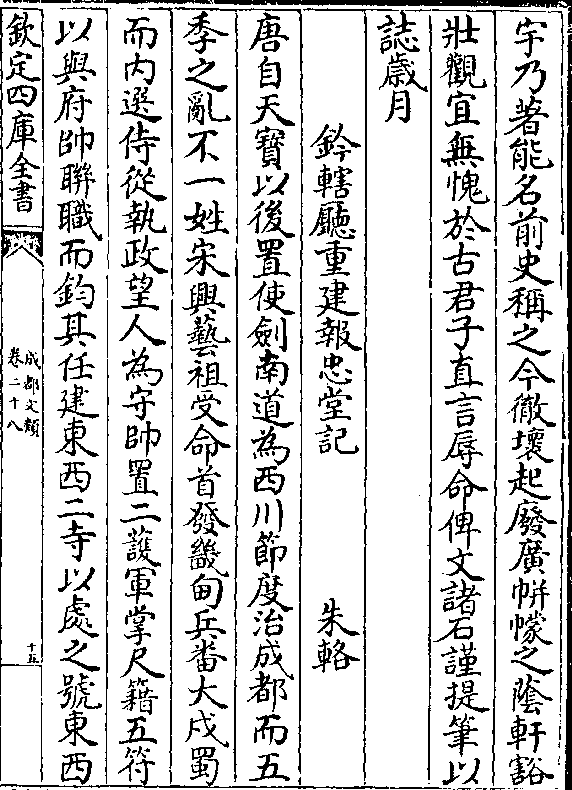 宇乃著能名前史稱之今徹壞起廢廣帡幪之隂軒豁
壯觀宜無愧於古君子直言辱命俾文諸石謹提筆以
誌歲月
鈐轄廳重建報忠堂記 朱輅
唐自天寶以後置使劍南道為西川節度治成都而五
季之亂不一姓宋興藝祖受命首發畿甸兵番大戍蜀
而内選侍從執政望人為守帥置二䕶軍掌尺籍五符
以與府帥聯職而鈞其任建東西二寺以處之號東西
欽定四庫全書
成都文類
卷二十八
十五